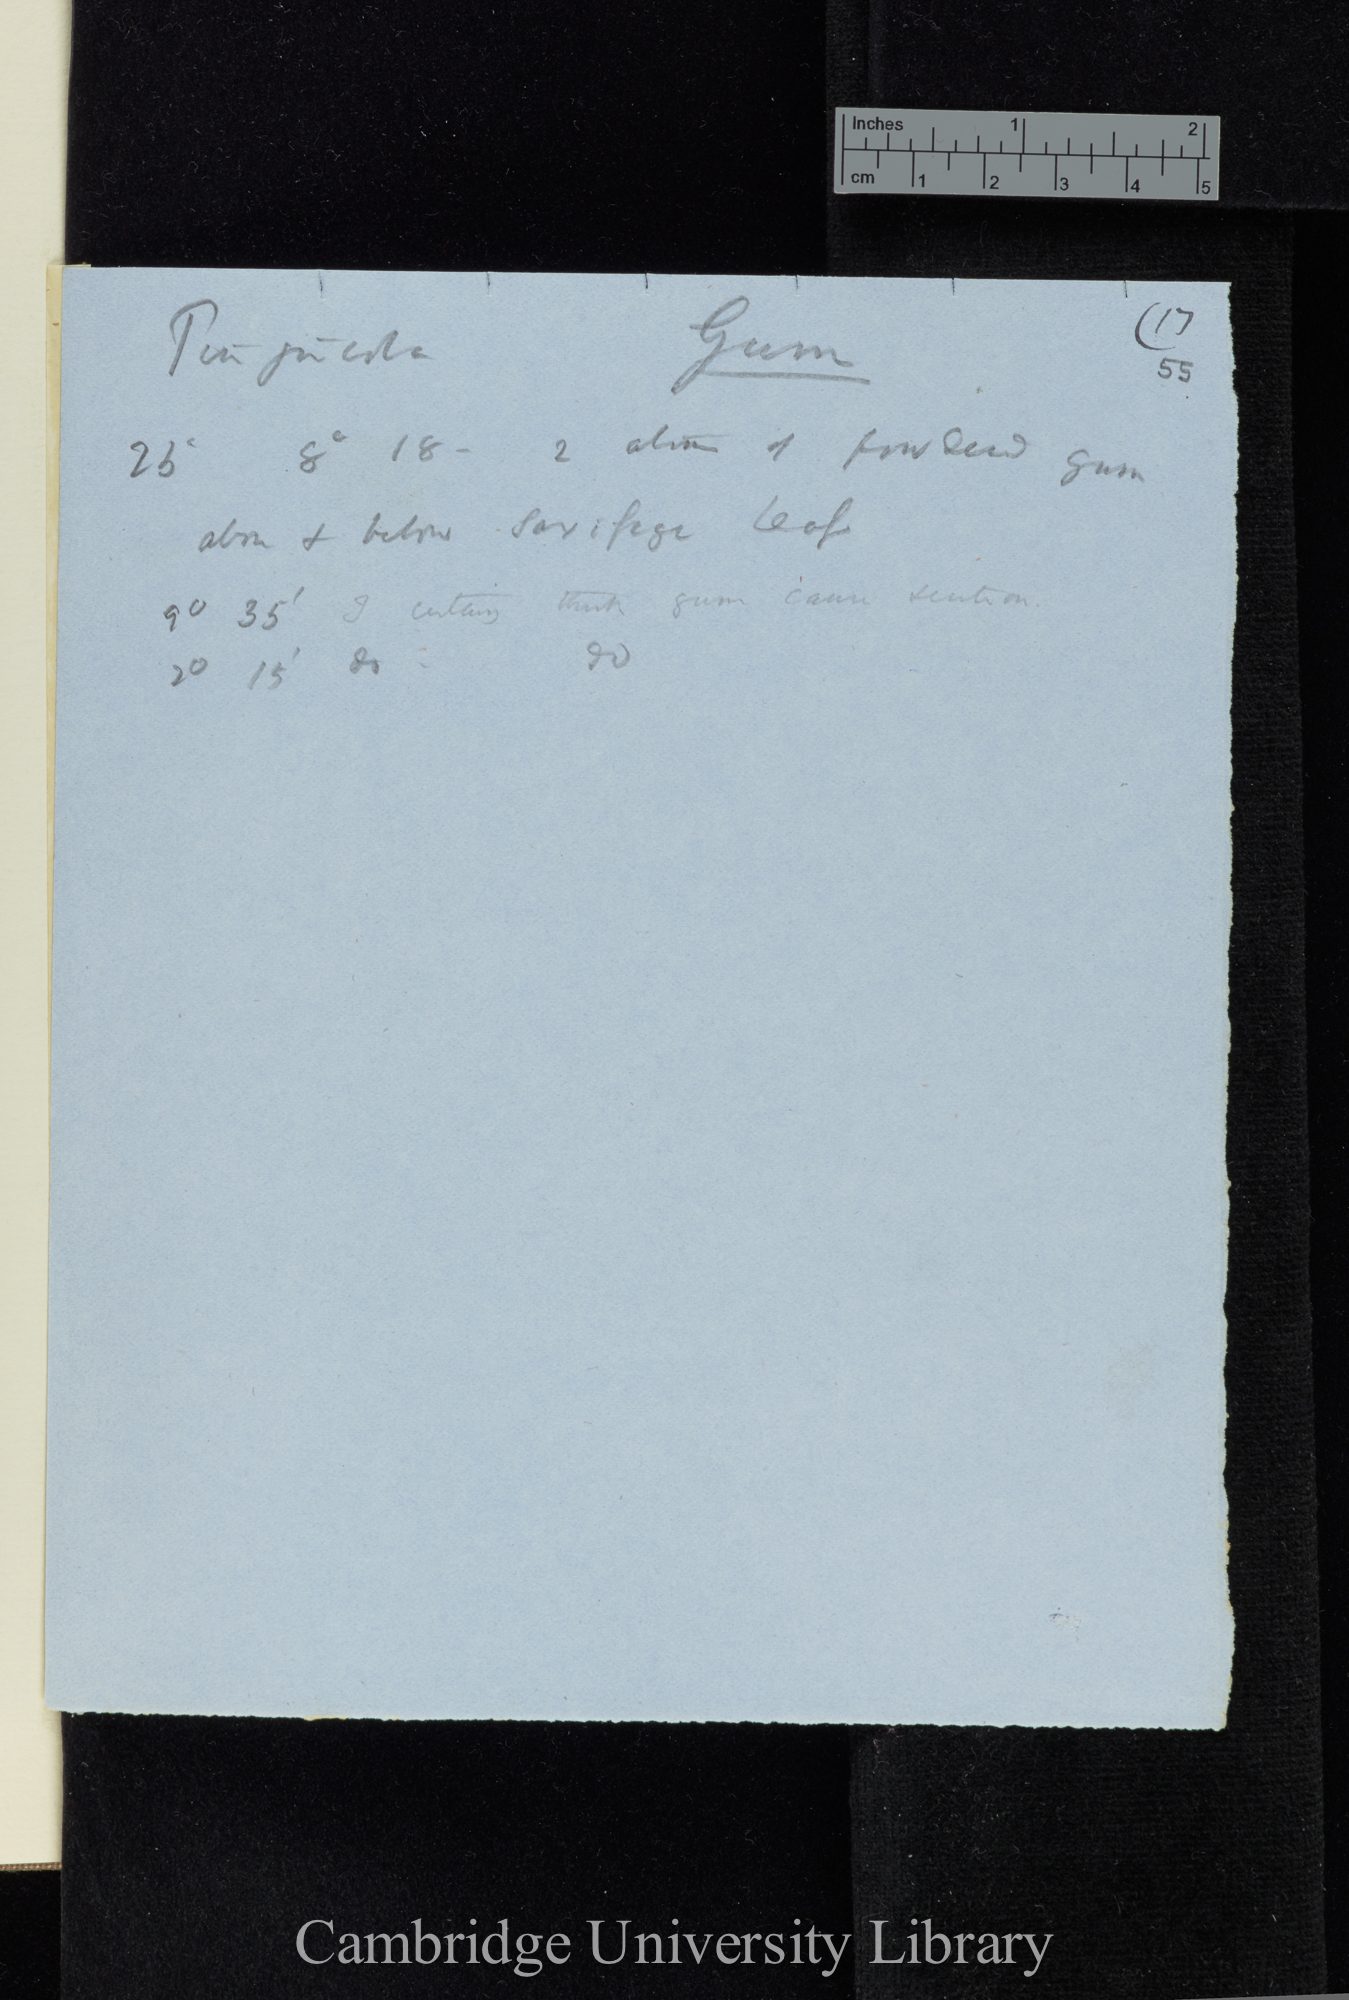 Inches 1 2
cm 1 2 3 4 5
(17
55
Pinguicula Gum
25° 8° 18 - 2 atoms of powdered gum
above & below Saxifrage leaf
9° 35' I certainly think gum cause secretion.
2° 15' do - do
Cambridge University Library